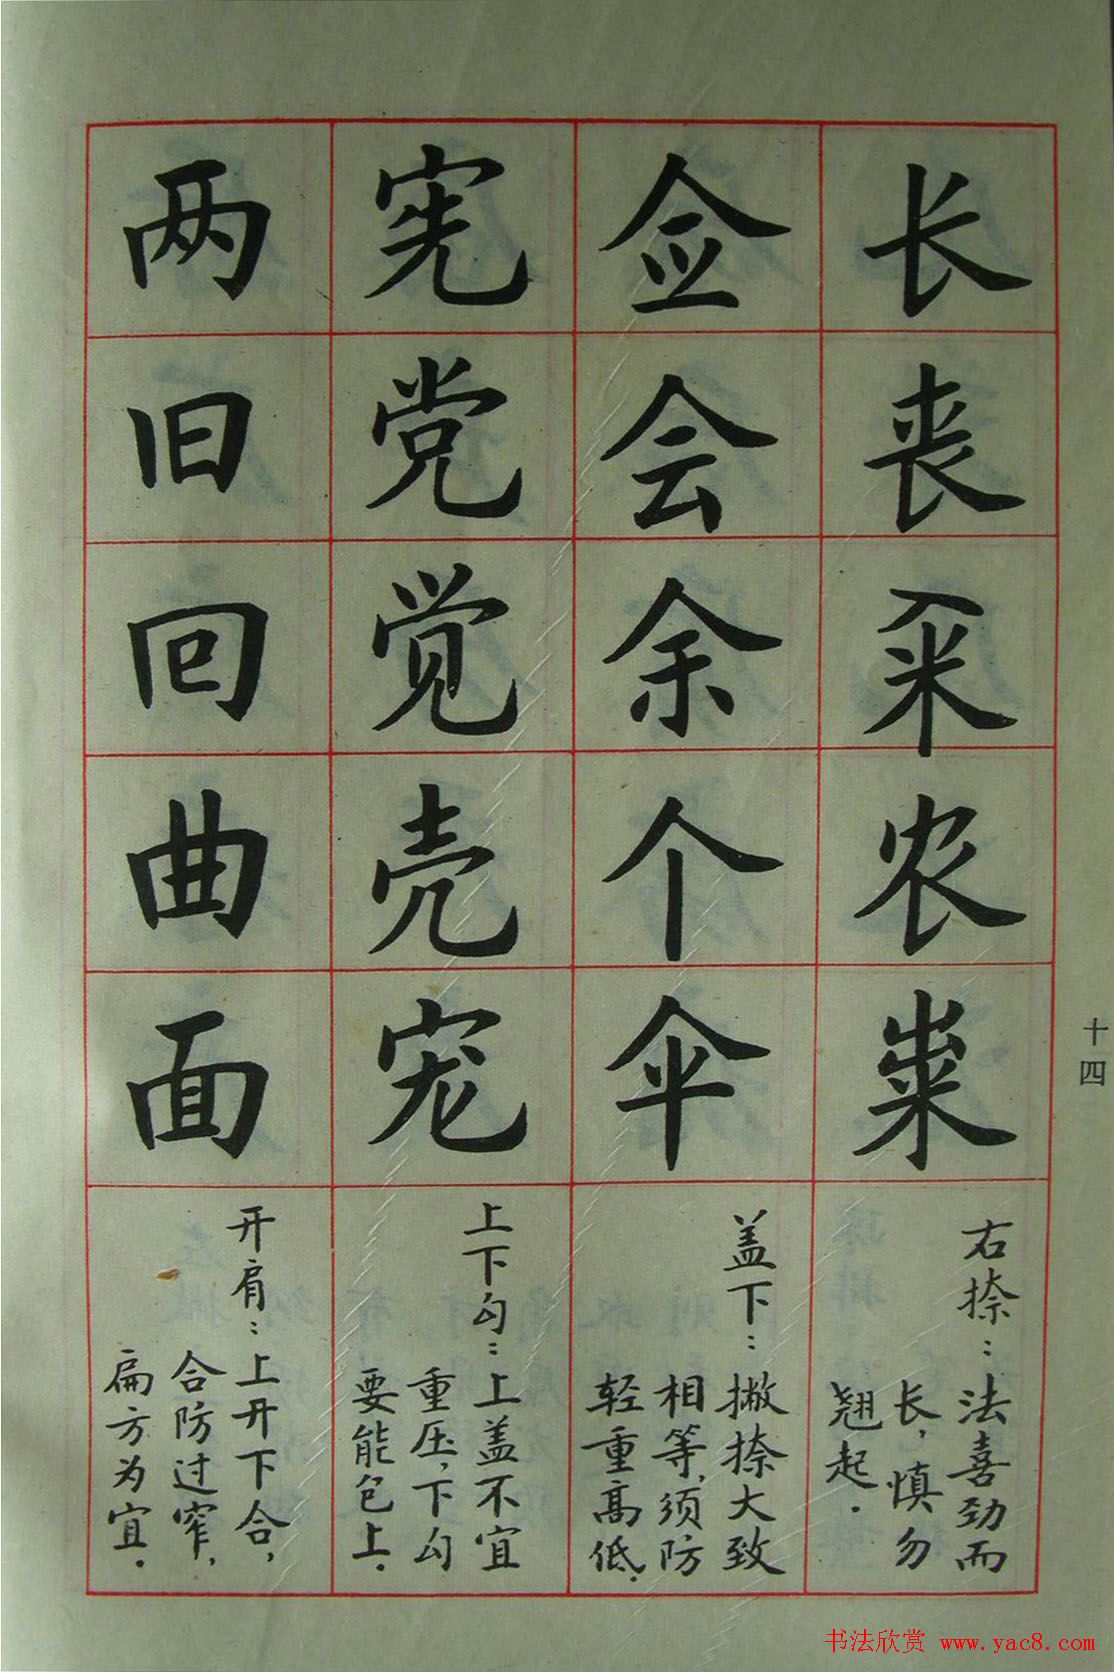 长丧籴农粜
右捺：法喜劲而
长，慎勿
翘起．
佥会余个伞
盖下：撇捺大致
相等，须防
轻重高低．
宪党觉壳宠
上下勾：上盖不宜
重压，下勾
要能包上．
两旧回曲面
开肩：上开下合，
合防过窄，
扁方为宜．
十四
书法欣赏 www.yac8.com